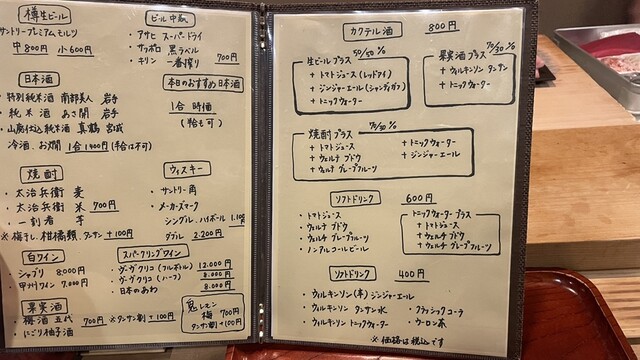 樽生ビール
サントリープレミアムモルツ
中 800円 小 600円
ビール 中瓶
・アサヒ スーパードライ
・サッポロ 黒ラベル
・キリン 一番搾り 700円
日本酒
・特別純米酒 南部美人 岩手
・純米酒 あさ開 岩手
・山廃仕込純米酒 真鶴 宮城
冷酒、お燗 1合 1400円(半合は不可)
本日のおすすめ日本酒
1合 時価
(半合も可)
焼酎
・太治兵衛 麦
・太治兵衛 米 700円
・一刻者 芋
※梅干し、柑橘類、タンサン +100円
ウィスキー
・サントリー角
・メーカーズマーク
シングル、ハイボール 1.100
ダブル 2.200円
白ワイン
・シャブリ 8.000円
・甲州ワイン 7.000円
スパークリングワイン
・ヴーヴクリコ(フルボトル) 12.000円
・ヴーヴクリコ(ハーフ) 8.000円
・日本のあわ 8.000円
果実酒
・梅酒 五代 700円 ※タンサン割+100円
・にごり柚子酒
鬼レモン
梅 700円
タンサン割+100円
カクテル酒 800円
生ビールプラス 50/50%
+トマトジュース(レッドアイ)
+ジンジャーエール(シャンディガフ)
+トニックウォーター
果実酒プラス 70/30%
+ウィルキンソン タンサン
+トニックウォーター
焼酎プラス 70/30%
+トマトジュース
+ウェルチ ブドウ
+ウェルチ グレープフルーツ
+トニックウォーター
+ジンジャーエール
ソフトドリンク 600円
・トマトジュース
・ウェルチ ブドウ
・ウェルチ グレープフルーツ
・ノンアルコールビール
トニックウォーター プラス
+トマトジュース
+ウェルチ ブドウ
+ウェルチ グレープフルーツ
ソフトドリンク 400円
・ウィルキンソン(辛)ジンジャーエール
・ウィルキンソン タンサン水
・ウィルキンソン トニックウォーター
・クラシックコーラ
・ウーロン茶
※価格は税込です